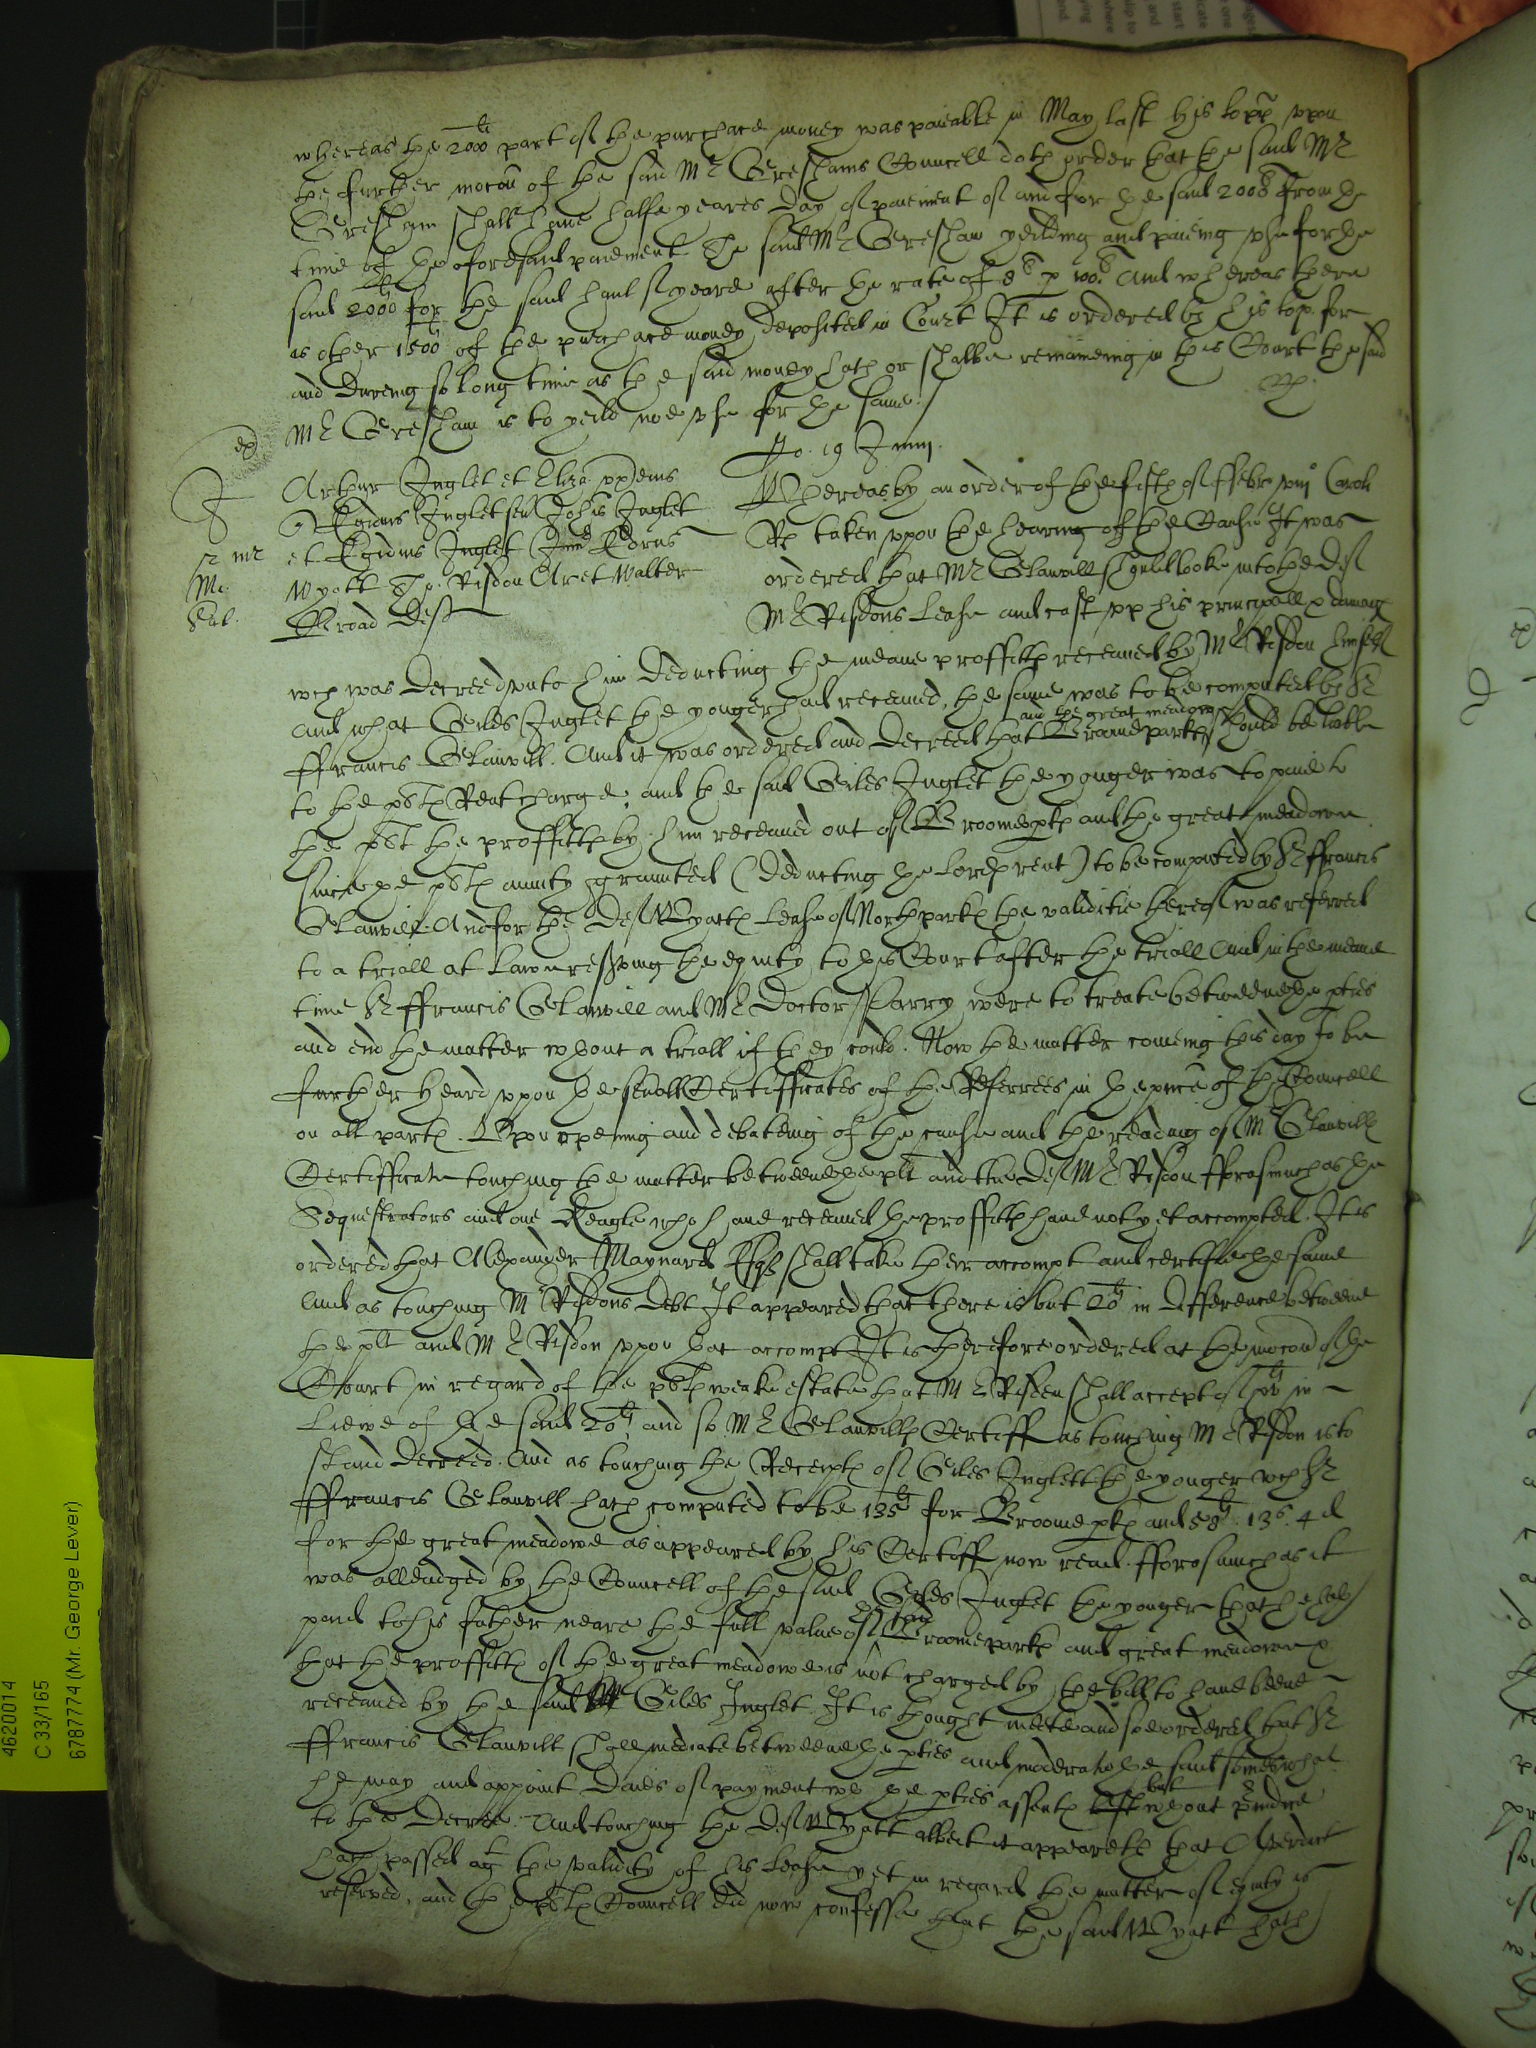 whereas the 2000li part of the purchase money was paieable in May last his lopp upon
the further mocōn of the said Mr Greshams Councell doth order that the said Mr
Gresham shall have halfe yeares day of paiement of and for the said 2000li from the
time of the aforesaid paiement The said Mr Gresham yeilding and paieing use for the
said 2000li for the said half yeare after the rate of 8li p 100li And whereas there
is other 1500li of the purchase money deposited in Court It is ordered by his lop. for
and dureing so long time as the said money hath or shalbe remaineing in this Court the said
Mr Gresham is to yeild noe use for the same./
Jo. 19 Junij.
Arthur Inglet et Eliza: ux ejus
Egidius Inglet sen Johis Inglet
et Egidius Inglet Jun
Wyott Tho: Risdon Ar et Walter
Broad Def
Whereas by an order of the fifth of ffebr viij Caroli
Rs taken upon the hearing of the Cause It was
ordered that Mr Glanvill should looke into the Def
Mr Risdons Lease and cast up his principall & damage
wch was decreed unto him deducting the meane proffitts received by Mr Risdon himself
and what Giles Inglet the younger had received, the same was to be computed by Sr
ffrancis Glanvill. And it was ordered and decreed that Broomeparks and the great meadowe should be liable
to the plts Rent charge, and the said Giles Inglet the younger was to paie to
the plt the proffitts by him receaved out of Broomepks and the great meadowe
since the plts annuity graunted (deducting the Lords rent) to be computed by Sr ffrancis
Glanvill. And for the Def Wyatts Lease of Northparks the validitie thereof was referred
to a triall at Lawe reserving the equity to this Court after the triall And in the meane
time Sr ffrancis Glanvill and Mr Doctor Parry were to treate betweene the pties
and end the matter wthout a triall if they could. Now the matter comeing this day to be
further heard upon the severall Certifficates of the Referrees in the pnce of the Councell
on all parts. Upon opening and debateing of the cause and the reading of Mr Glanvills
Certifficate touching the matter betweene the plt and the Def Mr Risdon fforasmuch as the
Sequestrators and one Reagle who have receaved the proffitts have not yet accompted. It is
ordered that Alexander Maynard Esqr shall take their accompt and certifie the same
And as touching Mr Risdons debt It appeared that there is but 20li in difference betweene
the plt and Mr Risdon upon that accompt It is therefore ordered at the mocōn of the
Court in regard of the plts weake estate that Mr Risdon shall accept of xli in
Liewe of the said 20li and so Mr Glanvills Certiff as touching Mr Risdon is to
stand decreed. And as touching the Receipts of Giles Inglett the younger wch Sr
ffrancis Glanvill hath computed to be 135li for Broomepks and 58li. 13s. 4d
for the great meadowe as appeared by his Certiff now read. fforasmuch as it
was alleadged by the Councell of the said Giles Inglet the younger that he had
paid to his father neare the full value of the said Broomeparks and great meadowe &
that the proffitts of the great meadowe is not charged by the bill to have beene
receaved by the said Giles Inglet. It is thought meete and soe ordered that Sr
ffrancis Glanvill shall mediate betweene the pties and moderate the said somes what
he may and appoint daies of payment wth the pties assents but wthout prejudice
to the decree. And touching the Def Wyatt albeit it appeareth that A Verdict
hath passed agt the validity of his Lease yet in regard the matter of equity is
reserved, and the plts Councell did now confesse that the said Wyatt hath
4620014
C 33/165
6787774 (Mr. George Lever)